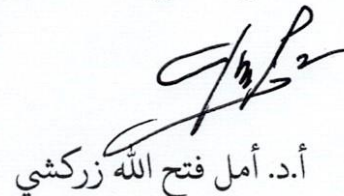 أ.د. أمل فتح الله زركشي